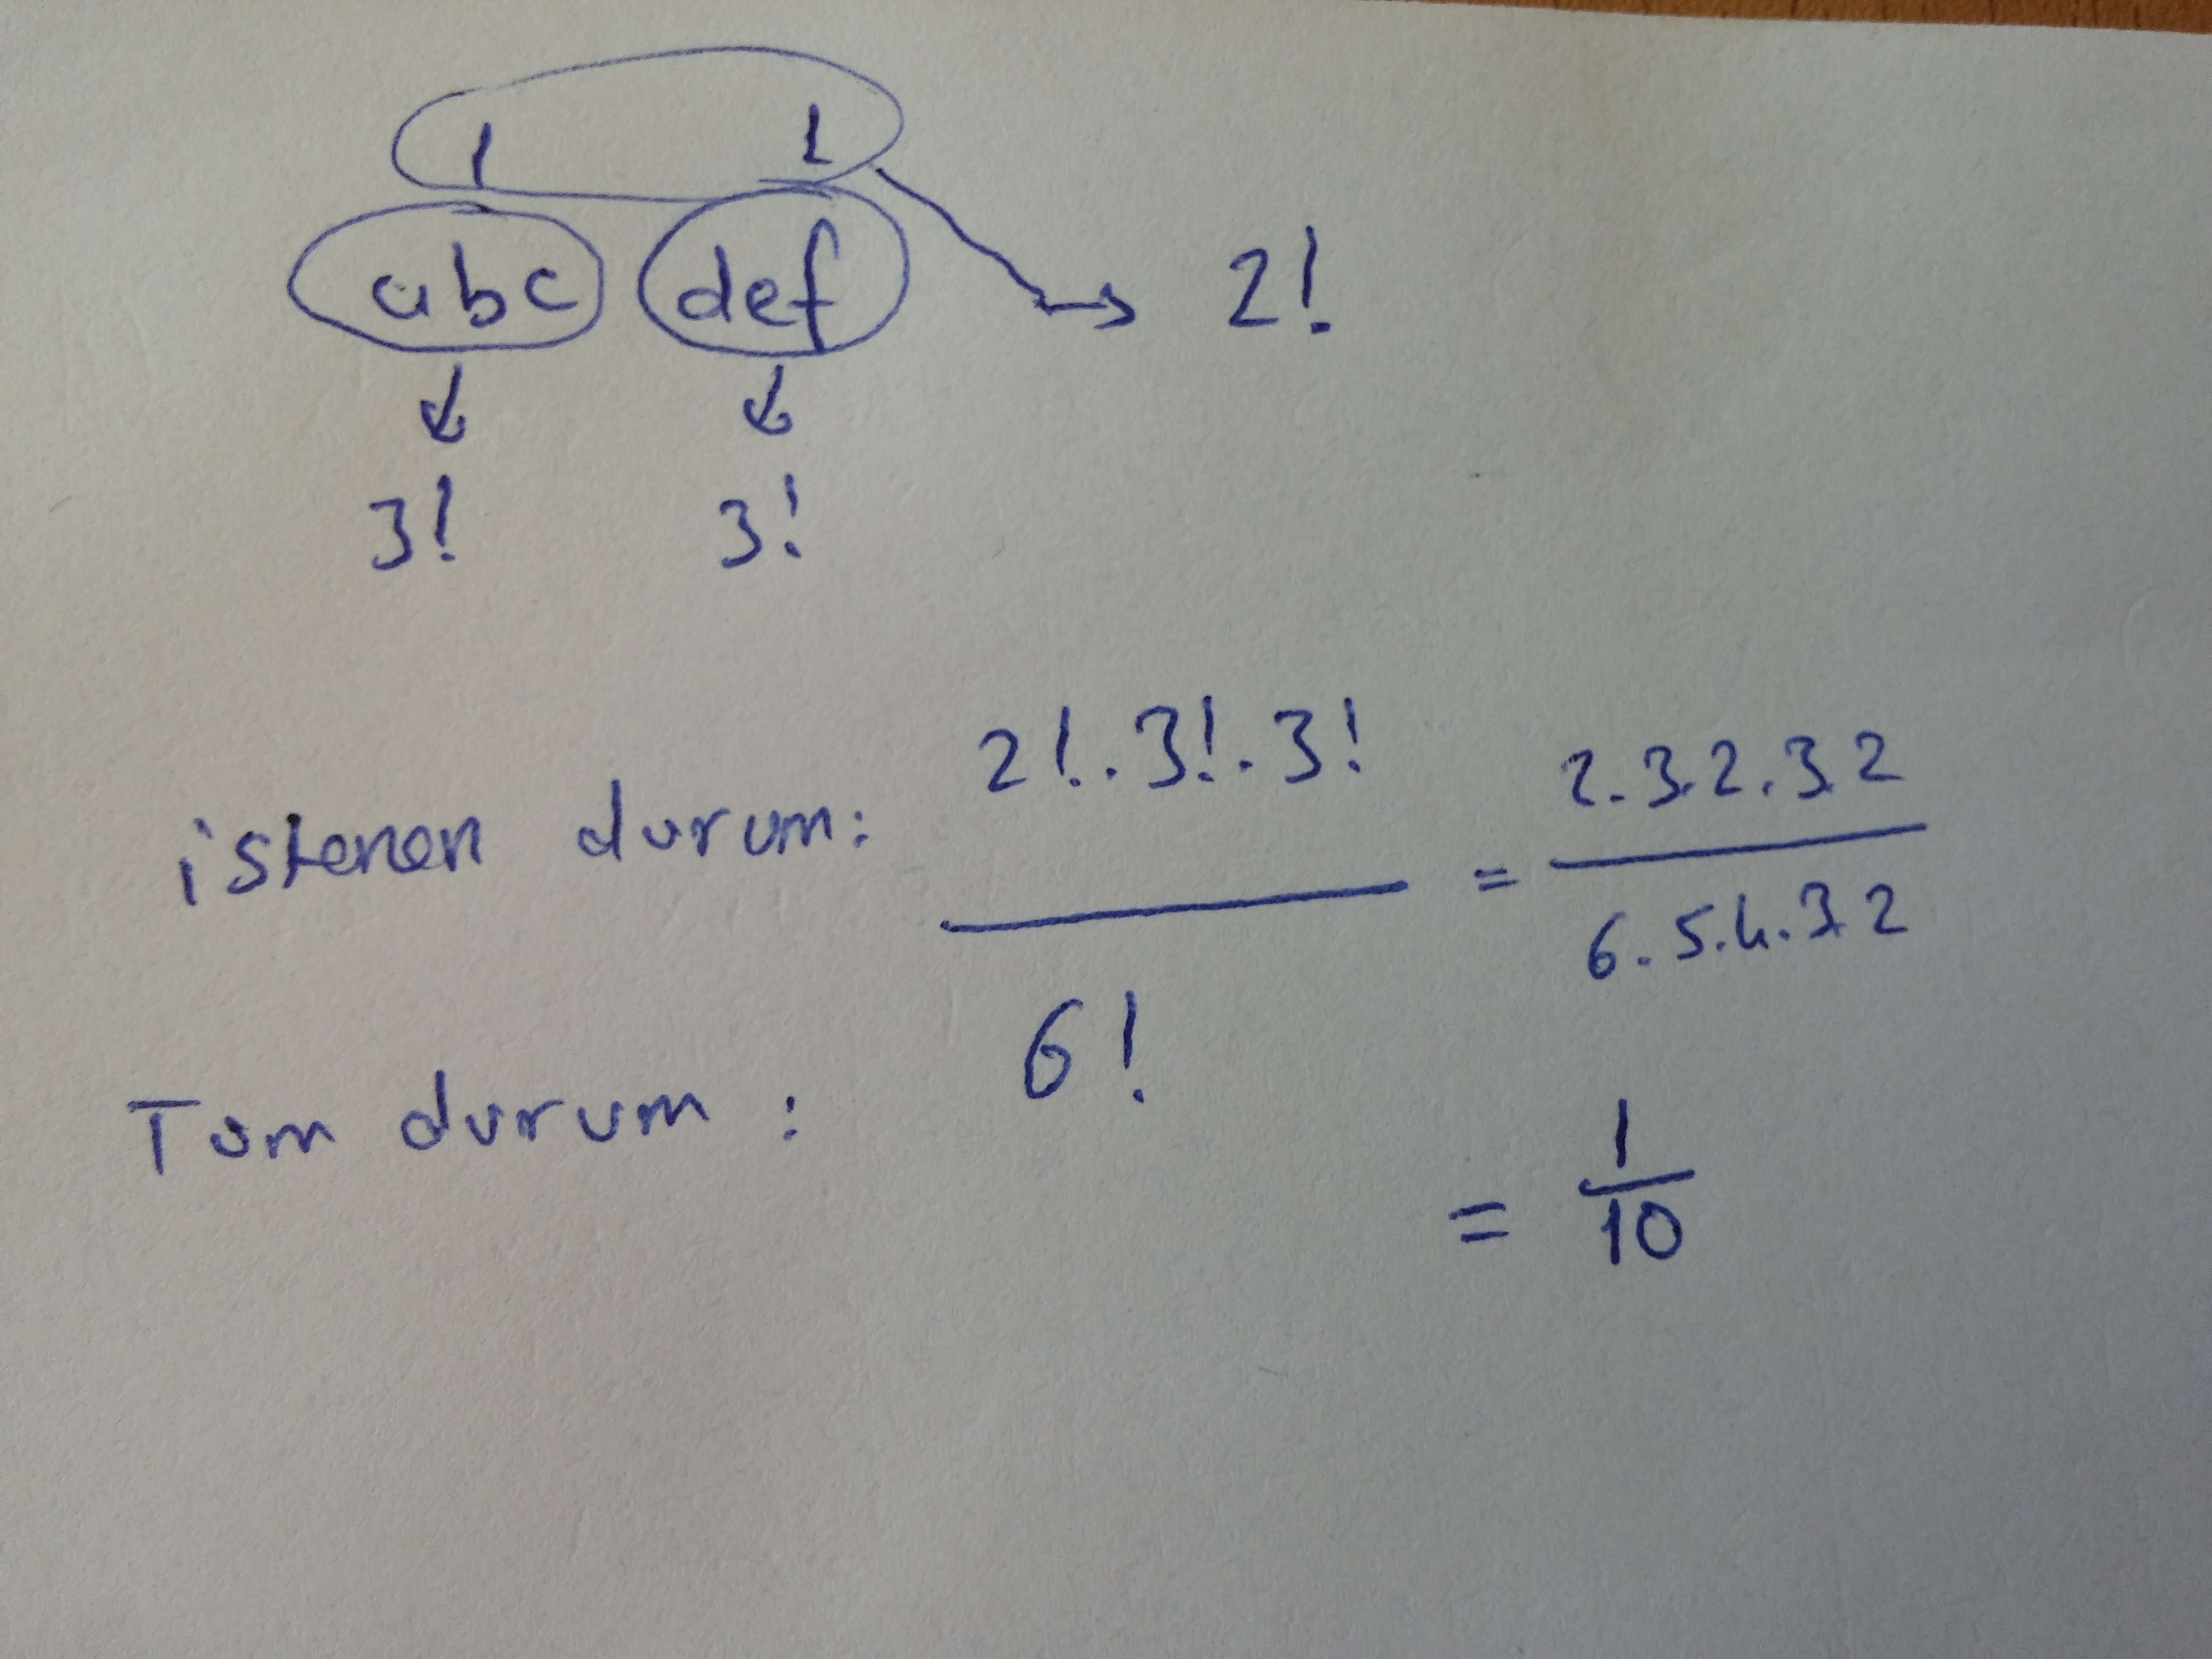 1 1
abc def → 2!
↓ ↓
3! 3!
istenen durum: 2!.3!.3! = 2.3.2.3.2
6! 6.5.4.3.2
Tum durum :
= 1
10